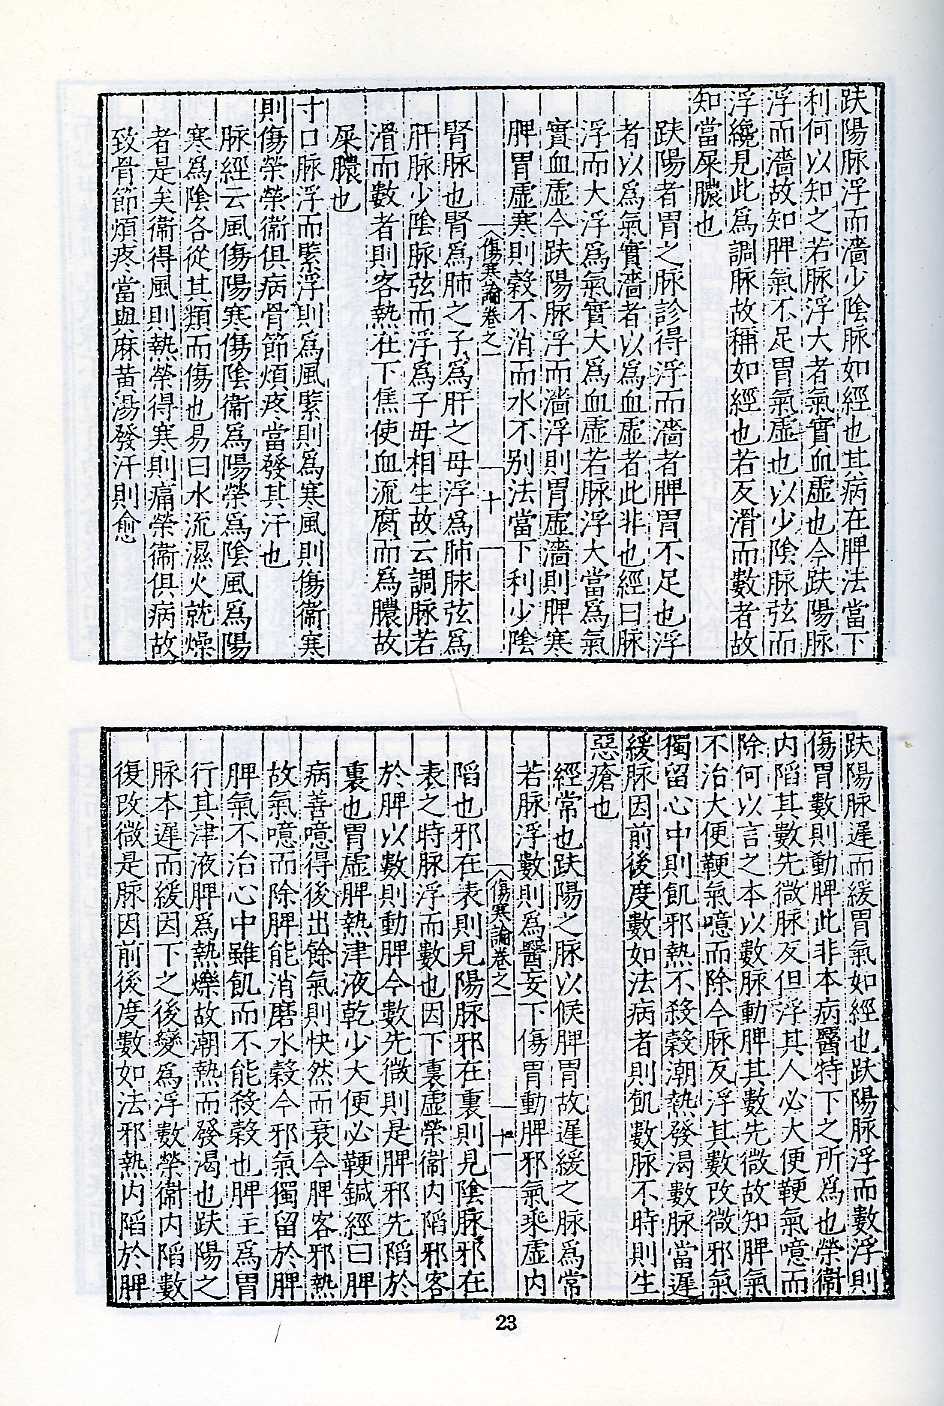 趺陽脉浮而濇少陰脉如經也其病在脾法當下
利何以知之若脉浮大者氣實血虛也今趺陽脉
浮而濇故知脾氣不足胃氣虛也以少陰脉弦而
浮纔見此爲調脉故稱如經也若反滑而數者故
知當屎膿也
趺陽者胃之脉診得浮而濇者脾胃不足也浮
者以爲氣實濇者以爲血虛者此非也經曰脉
浮而大浮爲氣實大爲血虛若脉浮大當爲氣
實血虛今趺陽脉浮而濇浮則胃虛濇則脾寒
脾胃虛寒則穀不消而水不别法當下利少陰
傷寒論卷之一 十
腎脉也腎爲肺之子爲肝之母浮爲肺脉弦爲
肝脉少陰脉弦而浮爲子母相生故云調脉若
滑而數者則客熱在下焦使血流腐而爲膿故
屎膿也
寸口脉浮而緊浮則爲風緊則爲寒風則傷衛寒
則傷榮榮衛俱病骨節煩疼當發其汗也
脉經云風傷陽寒傷陰衛爲陽榮爲陰風爲陽
寒爲陰各從其類而傷也易曰水流濕火就燥
者是矣衛得風則熱榮得寒則痛榮衛俱病故
致骨節煩疼當與麻黄湯發汗則愈
趺陽脉遲而緩胃氣如經也趺陽脉浮而數浮則
傷胃數則動脾此非本病醫特下之所爲也榮衛
内陷其數先微脉反但浮其人必大便鞕氣噫而
除何以言之本以數脉動脾其數先微故知脾氣
不治大便鞕氣噫而除今脉反浮其數改微邪氣
獨留心中則飢邪熱不殺穀潮熱發渴數脉當遲
緩脉因前後度數如法病者則飢數脉不時則生
惡瘡也
經常也趺陽之脉以候脾胃故遲緩之脉爲常
若脉浮數則爲醫妄下傷胃動脾邪氣乘虛内
傷寒論卷之一 十一
陷也邪在表則見陽脉邪在裏則見陰脉邪在
表之時脉浮而數也因下裏虛榮衛内陷邪客
於脾以數則動脾今數先微則是脾邪先陷於
裏也胃虛脾熱津液乾少大便必鞕鍼經曰脾
病善噫得後出餘氣則快然而衰今脾客邪熱
故氣噫而除脾能消磨水穀今邪氣獨留於脾
脾氣不治心中雖飢而不能殺穀也脾主爲胃
行其津液脾爲熱爍故潮熱而發渴也趺陽之
脉本遲而緩因下之後變爲浮數榮衛内陷數
復改微是脉因前後度數如法邪熱内陷於脾
23